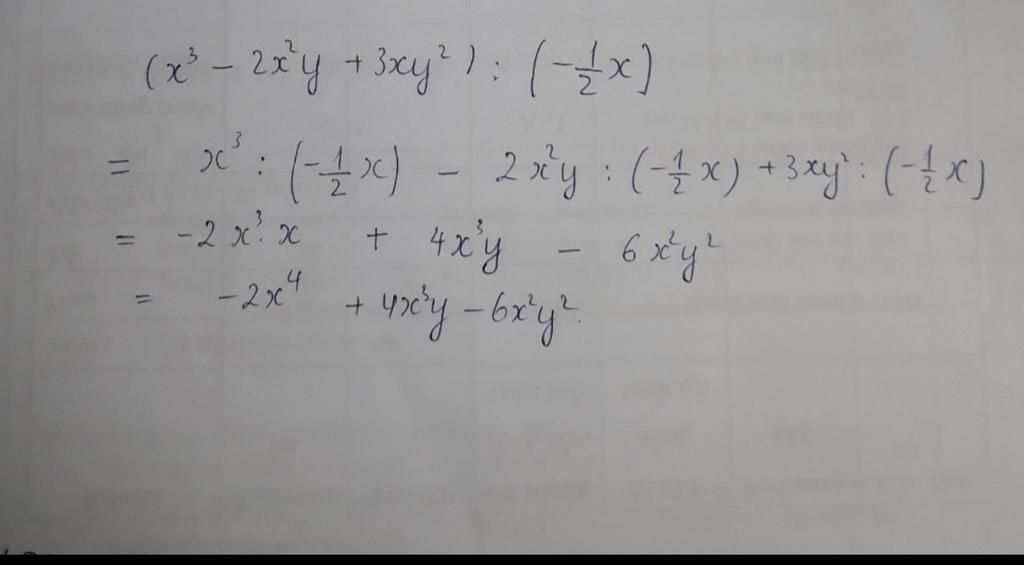 (x³ − 2x²y + 3xy²) : (−1/2 x)
= x³ : (−1/2 x) − 2x²y : (−1/2 x) + 3xy² : (−1/2 x)
= −2x³. x + 4x³y − 6x²y²
= −2x⁴ + 4x³y − 6x²y².